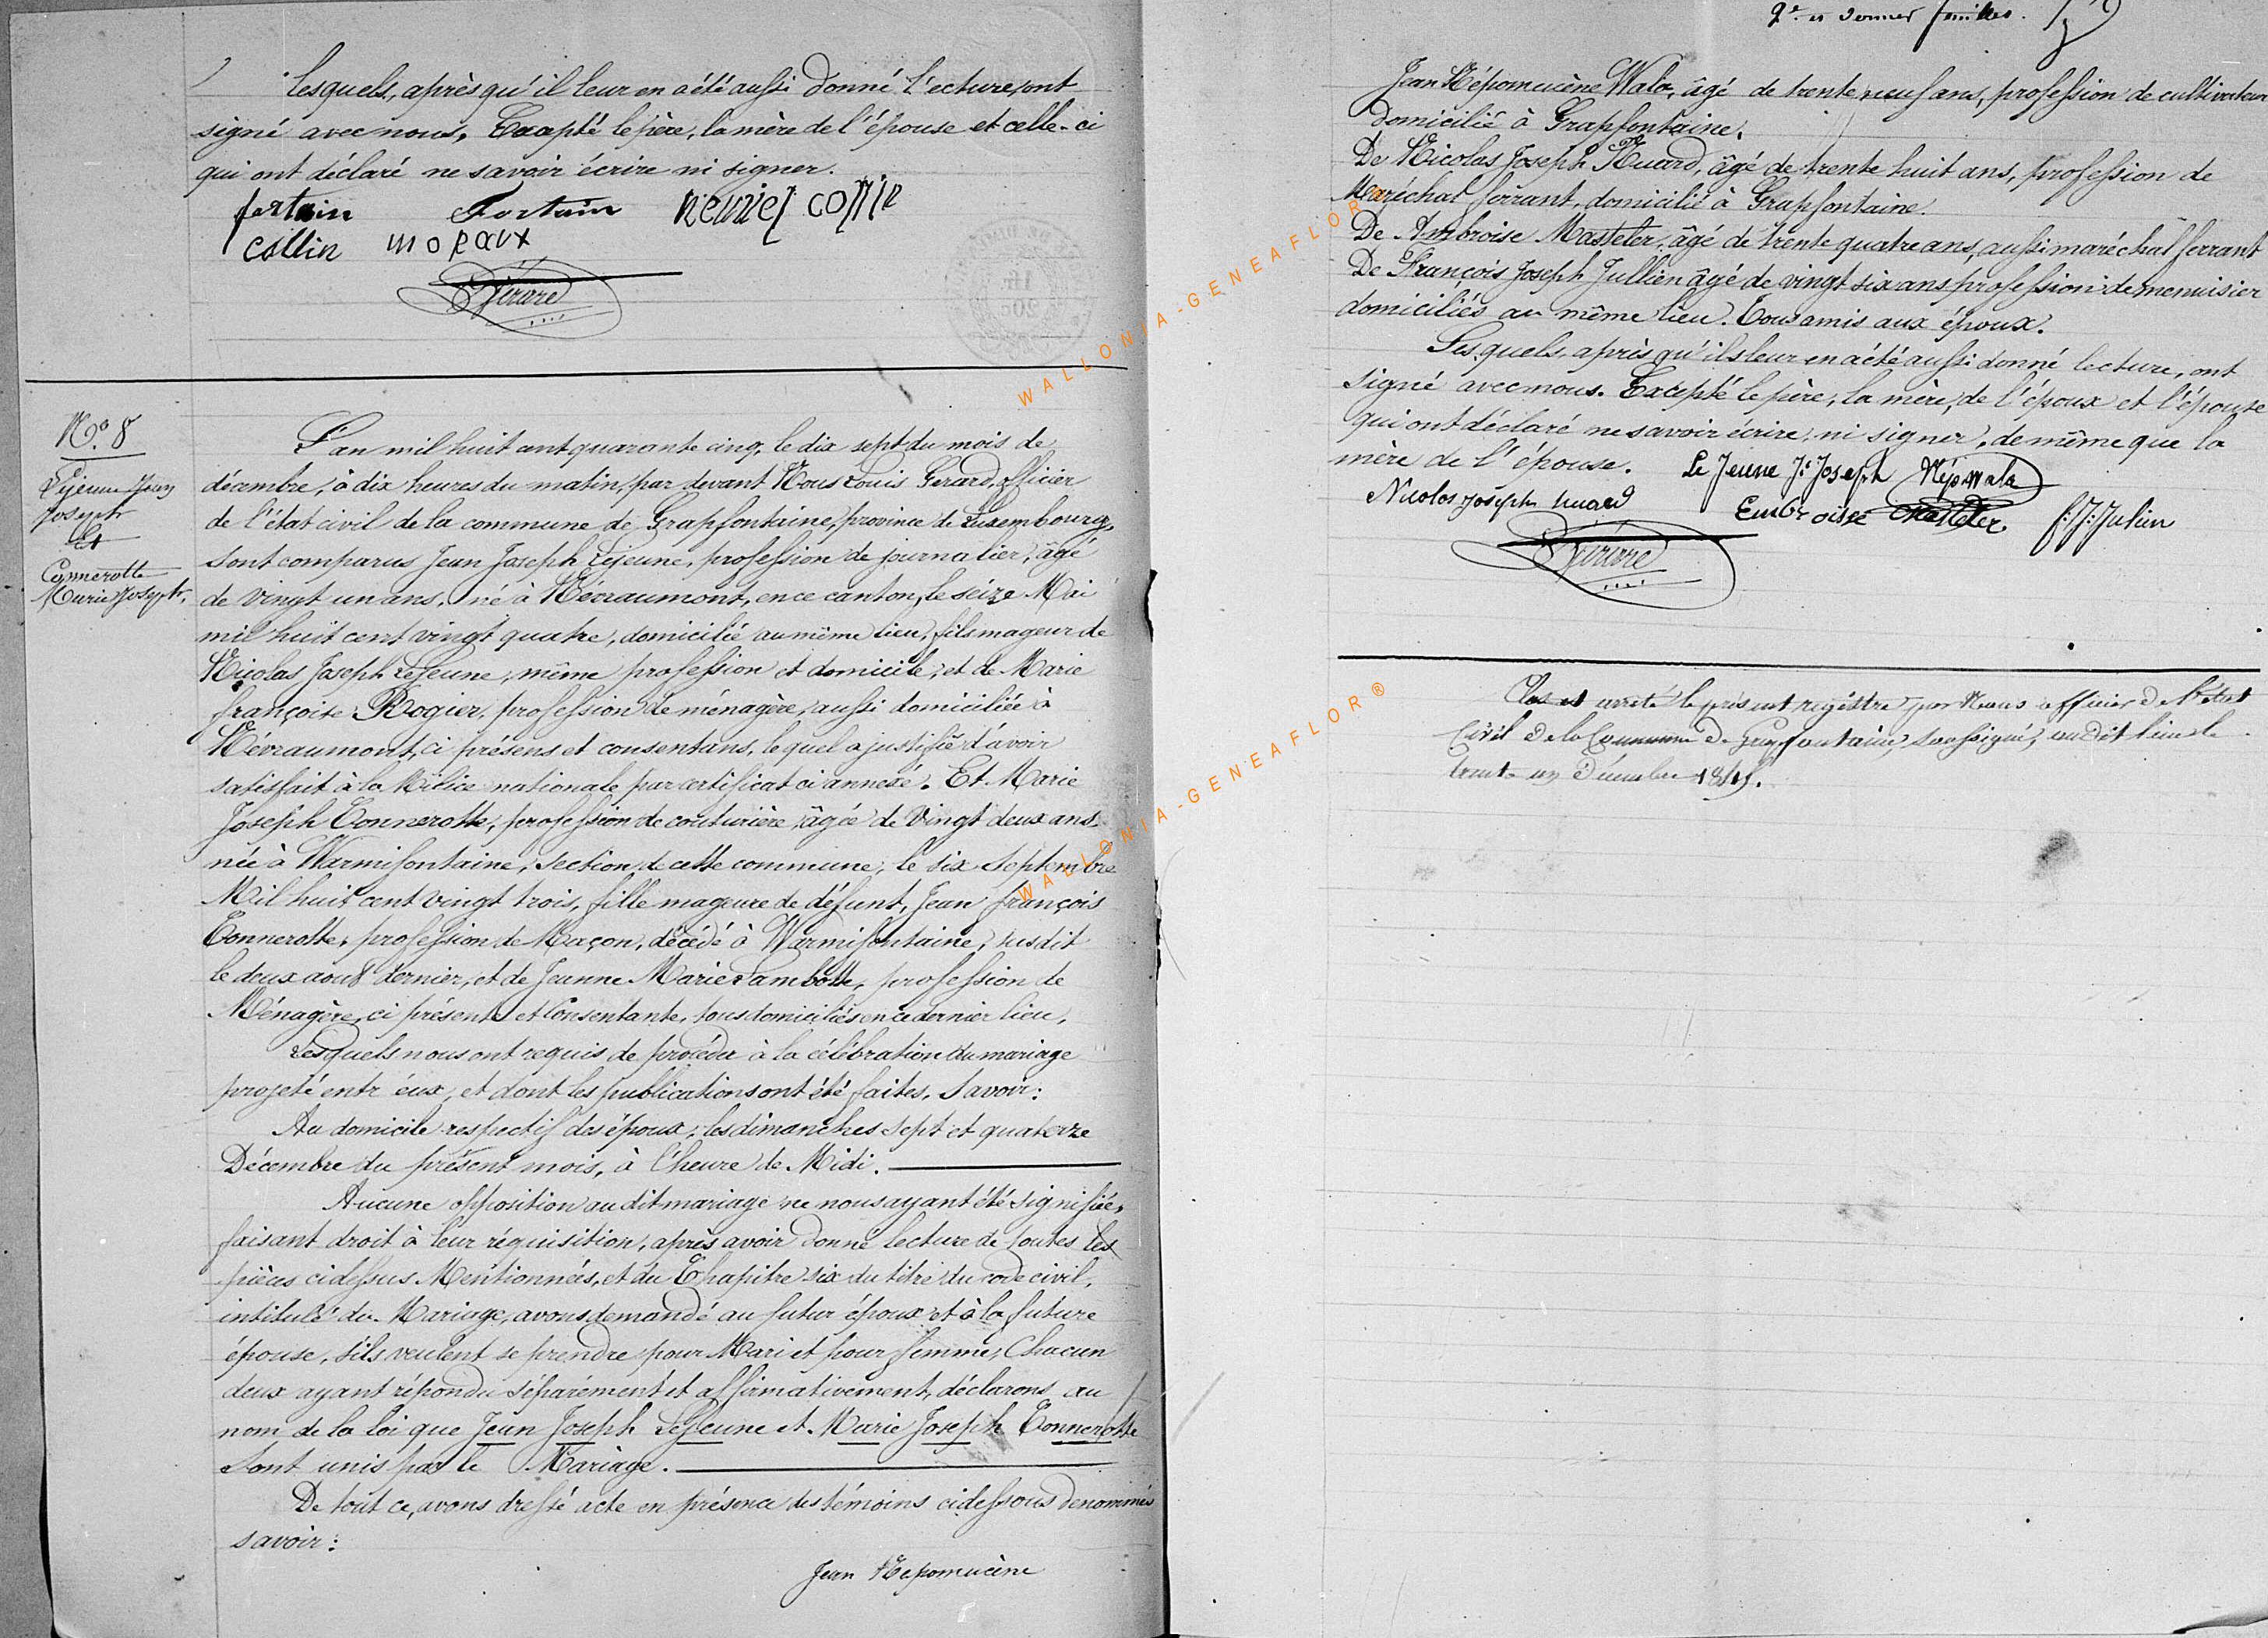 lesquels, après qu'il leur en a été aussi donné l'ecture, ont
signé avec nous, Excepté le père, la mère de l'épouse et celle-ci
qui ont déclaré ne savoir écrire ni signer.
fortain Fortain
collin moraux
Gérard
N.o 8
Lejeune Jean
Joseph
Et
Connerotte
Marie Joseph,
L'an mil huit cent quarante cinq, le dix sept du mois de
décembre, à dix heures du matin, par devant Nous Louis Gerard, officier
de l'état civil de la commune de Grapfontaine, province de Luxembourg,
sont comparus Jean Joseph Lejeune, profession de journalier, âgé
de vingt un ans, né à Névraumont, en ce canton, le seize Mai
mil huit cent vingt quatre, domicilié au même lieu, fils mageur de
Nicolas Joseph Lejeune, même profession et domicile, et de Marie
françoise Rogier, profession de ménagère, aussi domiciliée à
Névraumont, ci présens et consentans, lequel a justifié d'avoir
satisfait à la Milice nationale par certificat ci annexé. Et Marie
Joseph Connerotte, profession de couturière, âgée de vingt deux ans
née à Warmifontaine, section de cette commune, le six septembre
Mil huit cent vingt trois, fille mageure de défunt, Jean françois
Connerotte, profession de Maçon, décédé à Warmifontaine, susdit
le deux aout dernier, et de Jeanne Marie Lambotte, profession de
Ménagère, ci présente et Consentante, tous domiciliés en ce dernier lieu,
Lesquels nous ont requis de procéder à la célébration du mariage
projeté entr'eux, et dont les publications ont été faites, Savoir:
Au domicile respectif des époux, les dimanches sept et quatorze
Décembre du présent mois, à l'heure de Midi.
Aucune opposition au dit mariage ne nous ayant été signifiée,
faisant droit à leur réquisition, après avoir donné lecture de toutes les
pièces cidessus Mentionnées, et du Chapitre six du titre du code civil,
intitulé du Mariage, avons demandé au futur époux et à la future
épouse, s'ils veulent se prendre pour Mari et pour femme, Chacun
deux ayant répondu séparément et affirmativement, déclarons au
nom de la loi que Jean Joseph LeJeune et Marie Joseph Connerotte
sont unis par le Mariage.
De tout ce, avons dressé acte en présence des témoins cidessous denommés
savoir:
Jean Nepomucène
et dernier
Jean Népomucène Wala, âgé de trente neuf ans, profession de cultivateur
domicilié à Grapfontaine.
De Nicolas Joseph Huard, âgé de trente huit ans, profession de
Maréchal ferrant, domicilié à Grapfontaine.
De Ambroise Masteler, âgé de trente quatre ans, aussi maréchal ferrant
De François Joseph Jullien âgé de vingt six ans profession de menuisier
domiciliés au même lieu. Tous amis aux époux.
Lesquels, après qu'ils leur en a été aussi donné lecture, ont
signé avec nous. Excepté le père, la mère, de l'époux et l'épouse
qui ont déclaré ne savoir écrire, ni signer, de même que la
mère de l'épouse. Le Jeune J. Joseph Nép Wala
Nicolas Joseph huard Embroise Masteler f: J: Julien
Gérard
Clos et arrêté le présent registre par Nous officier de l'état
Civil de la Commune de Grapfontaine, soussigné, au dit lieu le
trente un Décembre 1845.
WALLONIA-GENEAFLOR
WALLONIA-GENEAFLOR®